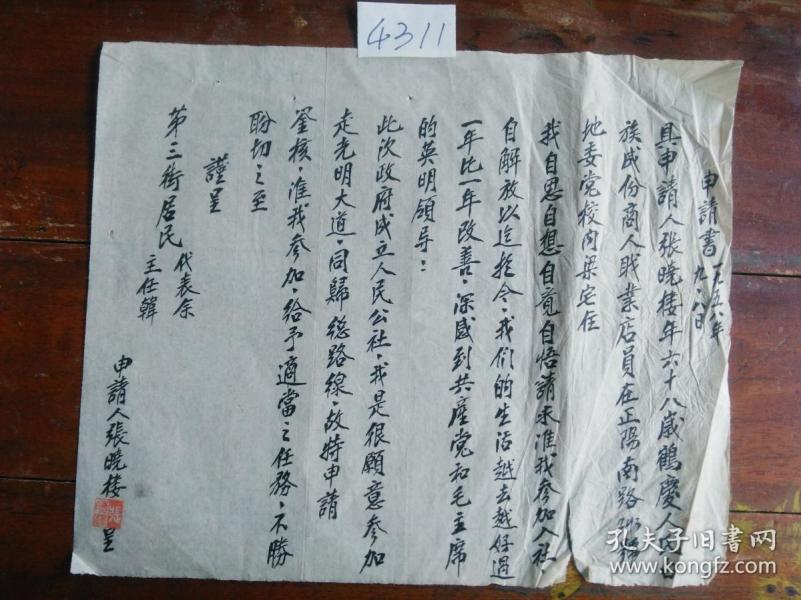 4311
申請書 一九五八年
九.八日
具申請人張曉樓年六十八歲鶴慶人
族成份商人職業店員在正陽南路
地委党校内梁宅住
我自思自想自覚自悟請求准我参加入社
自解放以迄於今，我们的生活越去越好过
一年比一年改善，深感到共産党和毛主席
的英明領导：
此次政府成立人民公社，我是很願意参加
走光明大道，同歸総路線，故特申請
鉴核，准我参加，给予適當之任務，不勝
盼切之至
謹呈
第三街居民 代表余
主任韓
申請人張曉樓 呈
孔夫子旧書网
www.kongfz.com